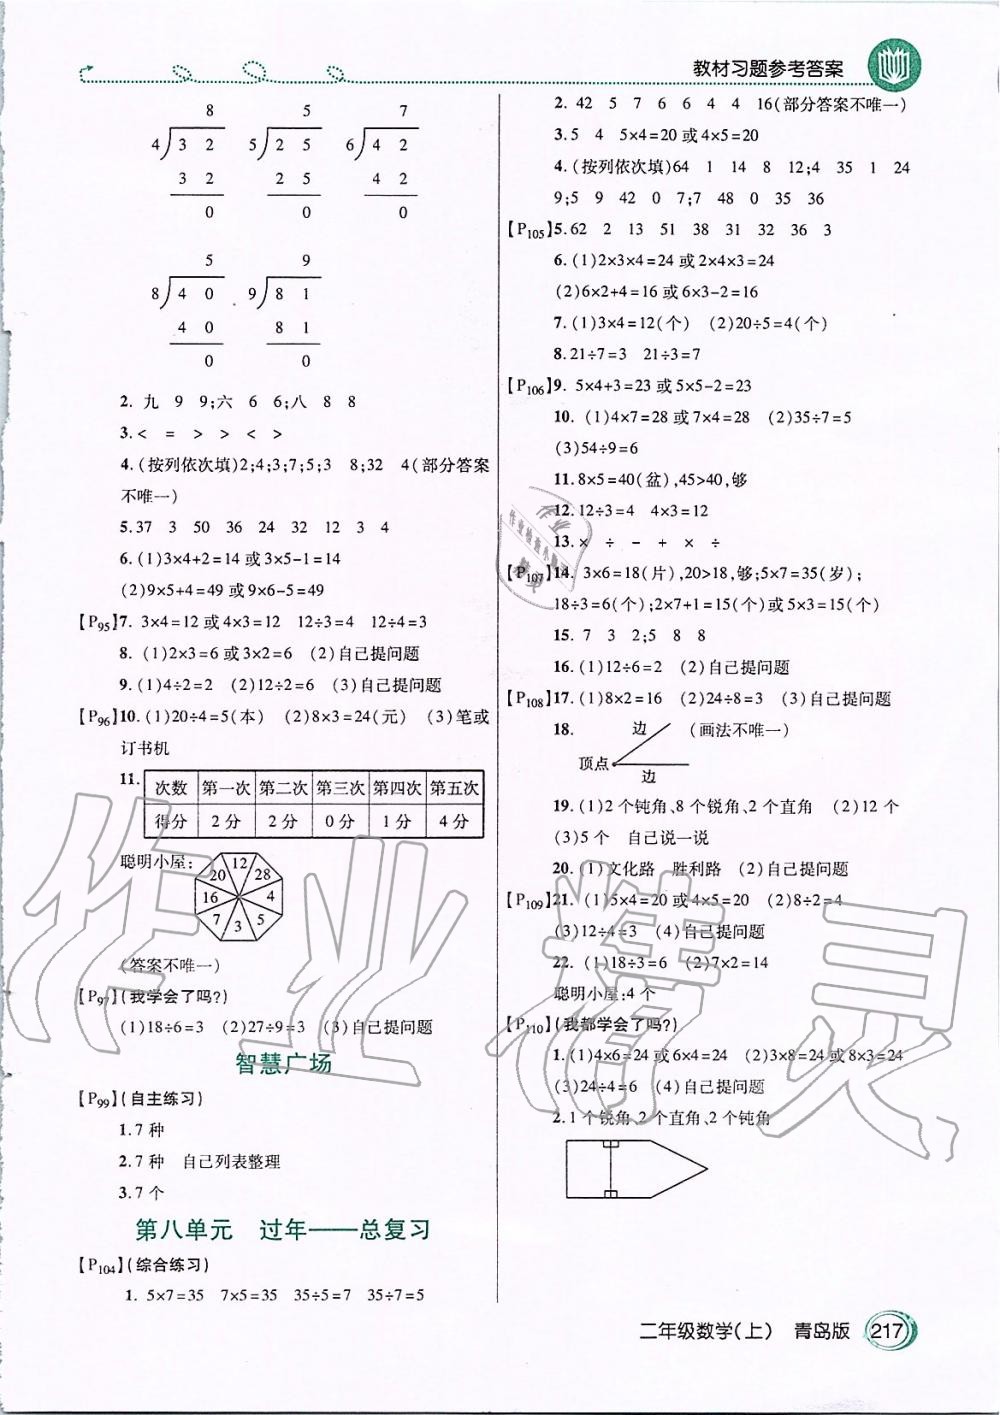 教材习题参考答案
8 5 7
4 3 2 5 2 5 6 4 2
3 2 2 5 4 2
0 0 0
5 9
8 4 0 9 8 1
4 0 8 1
0 0
2. 九 9 9;六 6 6;八 8 8
3.< = > > < >
4.(按列依次填)2;4;3;7;5;3 8;32 4(部分答案
不唯一)
5.37 3 50 36 24 32 12 3 4
6.(1)3×4+2=14或3×5-1=14
(2)9×5+4=49或9×6-5=49
【P95】7. 3×4=12或4×3=12 12÷3=4 12÷4=3
8. (1)2×3=6或3×2=6 (2)自己提问题
9. (1)4÷2=2 (2)12÷2=6 (3)自己提问题
【P96】10.(1)20÷4=5(本) (2)8×3=24(元) (3)笔或
订书机
11.
次数 第一次 第二次 第三次 第四次 第五次
得分 2分 2分 0分 1分 4分
聪明小屋:
20 12 28
16 4
7 3 5
(答案不唯一)
【P97】(我学会了吗?)
(1)18÷6=3 (2)27÷9=3 (3)自己提问题
智慧广场
【P99】(自主练习)
1.7种
2.7种 自己列表整理
3.7个
第八单元 过年——总复习
【P104】(综合练习)
1. 5×7=35 7×5=35 35÷5=7 35÷7=5
2. 42 5 7 6 6 4 4 16(部分答案不唯一)
3.5 4 5×4=20或4×5=20
4.(按列依次填)64 1 14 8 12;4 35 1 24
9;5 9 42 0 7;7 48 0 35 36
【P105】5.62 2 13 51 38 31 32 36 3
6.(1)2×3×4=24或2×4×3=24
(2)6×2+4=16或6×3-2=16
7.(1)3×4=12(个) (2)20÷5=4(个)
8.21÷7=3 21÷3=7
【P106】9. 5×4+3=23或5×5-2=23
10. (1)4×7=28或7×4=28 (2)35÷7=5
(3)54÷9=6
11.8×5=40(盆),45>40,够
12.12÷3=4 4×3=12
13.× ÷ - + × ÷
【P107】14. 3×6=18(片),20>18,够;5×7=35(岁);
18÷3=6(个);2×7+1=15(个)或5×3=15(个)
15. 7 3 2;5 8 8
16.(1)12÷6=2 (2)自己提问题
【P108】17.(1)8×2=16 (2)24÷8=3 (3)自己提问题
18. 边 (画法不唯一)
顶点
边
19.(1)2个钝角、8个锐角、2个直角 (2)12个
(3)5个 自己说一说
20.(1)文化路 胜利路 (2)自己提问题
【P109】21. (1)5×4=20或4×5=20 (2)8÷2=4
(3)12÷4=3 (4)自己提问题
22. (1)18÷3=6 (2)7×2=14
聪明小屋:4个
【P110】(我都学会了吗?)
1.(1)4×6=24或6×4=24 (2)3×8=24或8×3=24
(3)24÷4=6 (4)自己提问题
2.1个锐角、2个直角、2个钝角
二年级数学(上) 青岛版 217
作业精灵